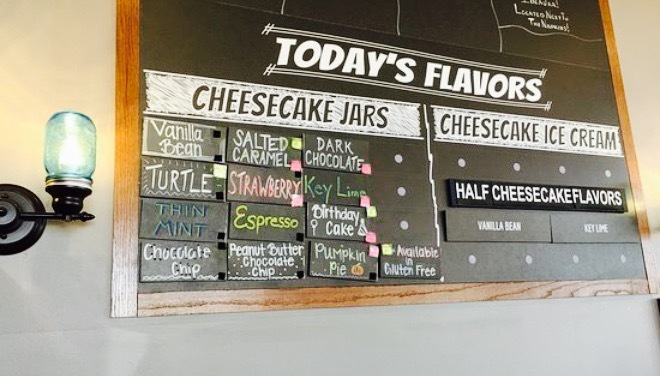 I BEAURA!
LOCATED NEXT TO
THE NAPKINS!
TODAY'S FLAVORS
CHEESECAKE JARS
Vanilla
Bean
SALTED
CARAMEL
DARK
CHOCOLATE
TURTLE
STRAWBERRY
Key Lime
THIN
MINT
Espresso
Birthday
Cake
Chocolate
Chip
Peanut Butter
Chocolate
Chip
Pumpkin
Pie
Available
in
Gluten Free
CHEESECAKE ICE CREAM
HALF CHEESECAKE FLAVORS
VANILLA BEAN
KEY LIME